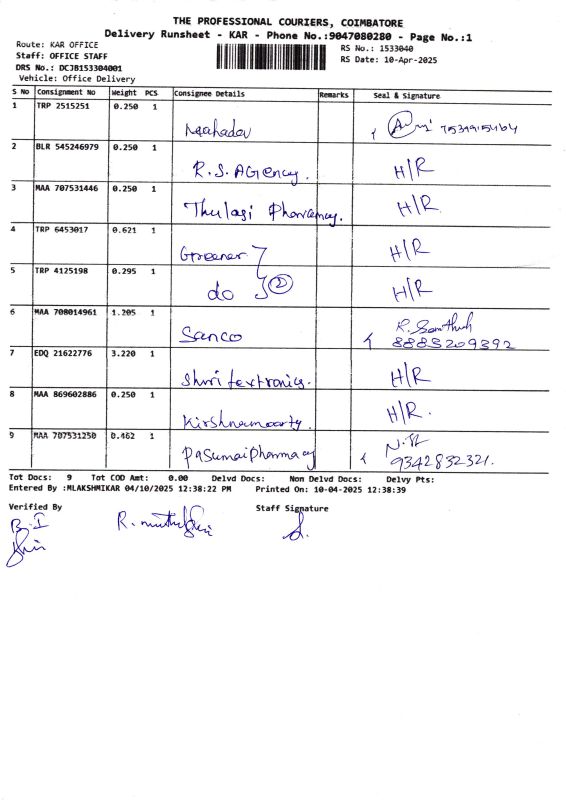 THE PROFESSIONAL COURIERS, COIMBATORE
Delivery Runsheet - KAR - Phone No.:9047080280 - Page No.:1
Route: KAR OFFICE
RS No.: 1533040
Staff: OFFICE STAFF
RS Date: 10-Apr-2025
DRS No.: DCJB153304001
Vehicle: Office Delivery
S No Consignment No Weight PCS Consignee Details Remarks Seal & Signature
1 TRP 2515251 0.250 1
Mahadev
2 BLR 545246979 0.250 1
R.S. AGency. H/R
3 MAA 707531446 0.250 1
Thulasi Pharmamcy. H/R
4 TRP 6453017 0.621 1
Greener H/R
5 TRP 4125198 0.295 1
do 2 H/R
6 MAA 708014961 1.205 1
Sanco 8883209392
7 EDQ 21622776 3.220 1
Shwi textronics. H/R
8 MAA 869602886 0.250 1
Kirshnamoorty H/R.
9 MAA 707531250 0.462 1
Pasumai Pharmacy 9342832321.
Tot Docs: 9 Tot COD Amt: 0.00 Delvd Docs: Non Delvd Docs: Delvy Pts:
Entered By :MLAKSHMIKAR 04/10/2025 12:38:22 PM Printed On: 10-04-2025 12:38:39
Verified By Staff Signature